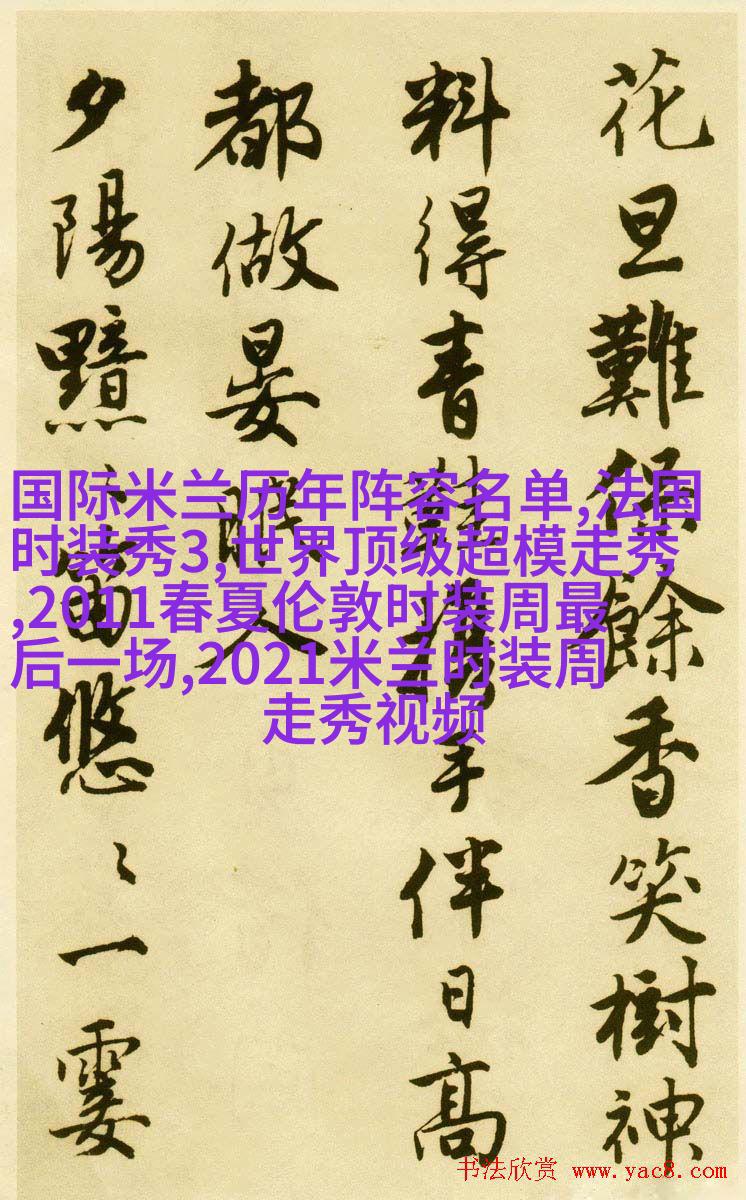 花旦難餘香笑樹神
料得青鞋攜手伴日高
都做晏眠人
夕陽黯〻笛悠〻一霎
国际米兰历年阵容名单,法国
时装秀3,世界顶级超模走秀
,2011春夏伦敦时装周最
后一场,2021米兰时装周
走秀视频
书法欣赏 www.yac8.com